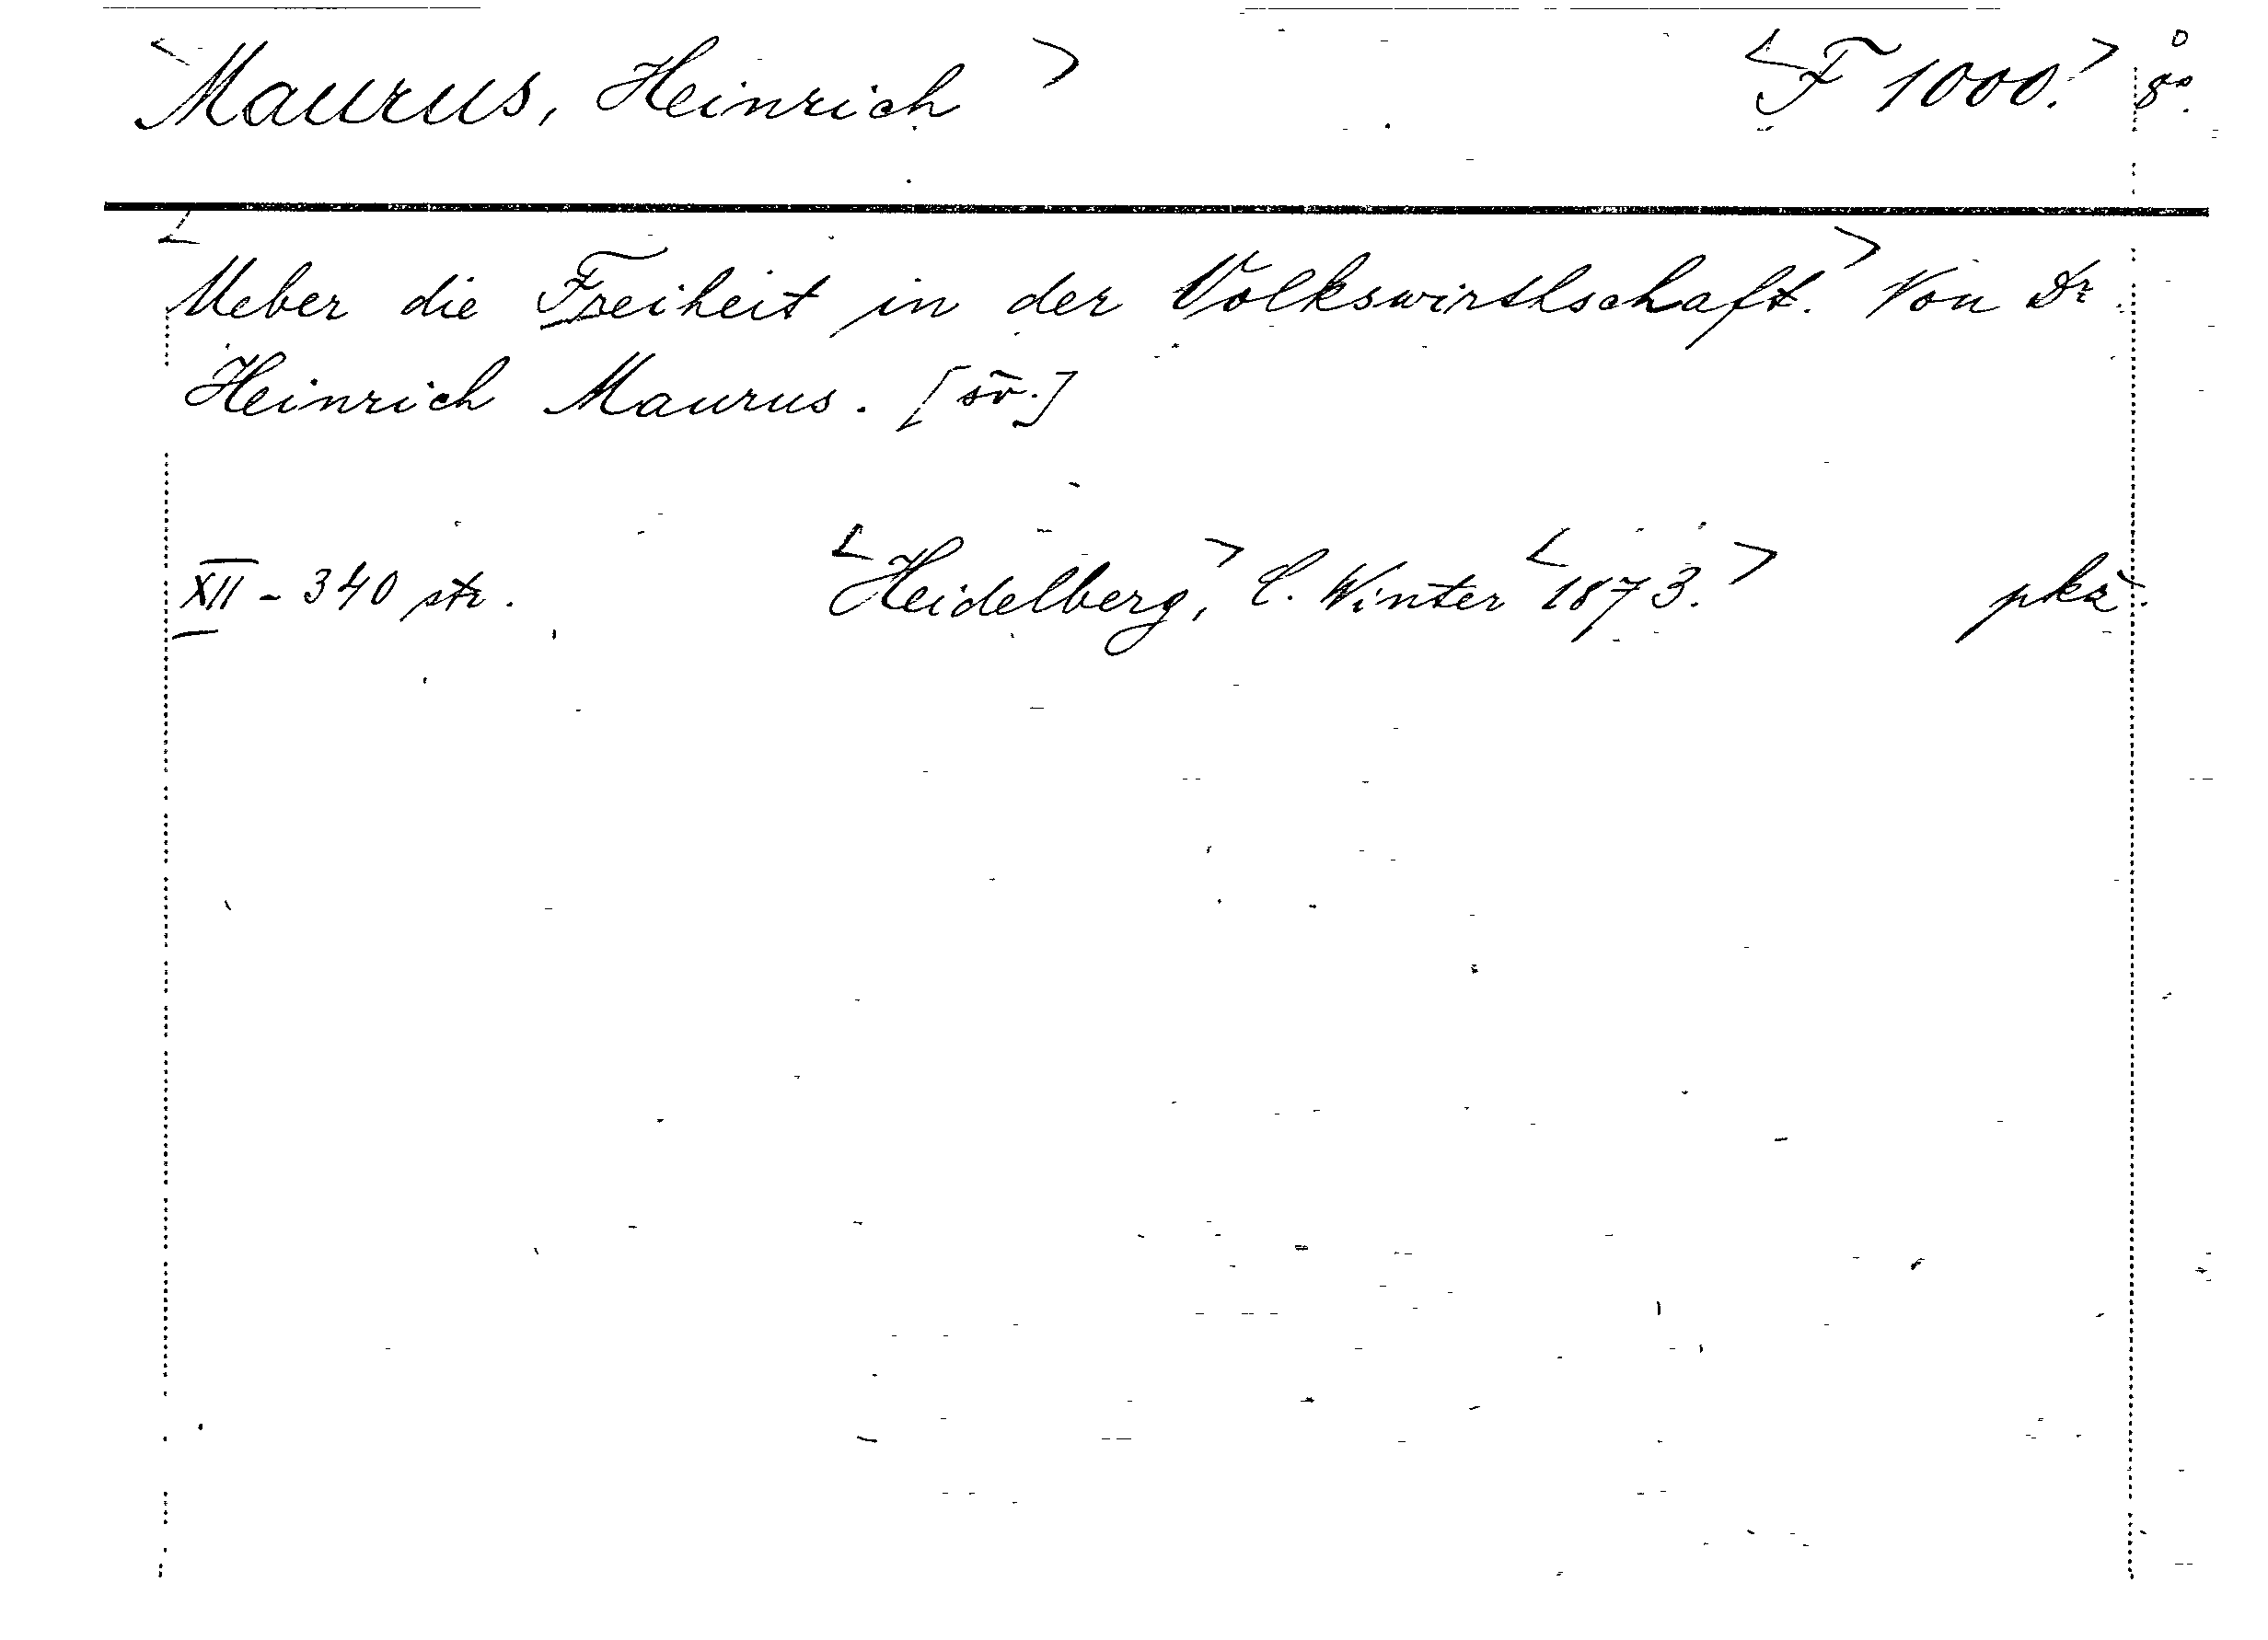 <Maurus, Heinrich> <F 1000.> 8°.
<Ueber die Freiheit in der Volkswirthschaft.> Von Dr.
Heinrich Maurus. [sv.]
XII - 340 str. <Heidelberg,> C. Winter <1873.> pkž.